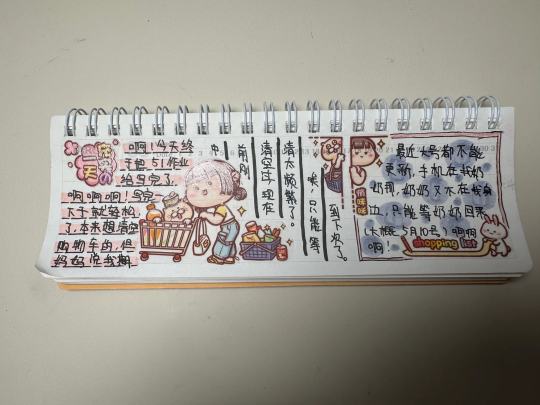 啊！今天终
于把51作业
给写完了
啊啊啊！写完
了就轻松
了，本来想清空
购物车的，但
妈妈说我期
中
前刚
清空过，现在
清太频繁了。
唉，只能等
到下次了。
最近大号都不能
更新，手机在我奶
奶那，奶奶又不在我身
边，只能等奶奶回来
（大概5月10号）啊啊
啊！
shopping list